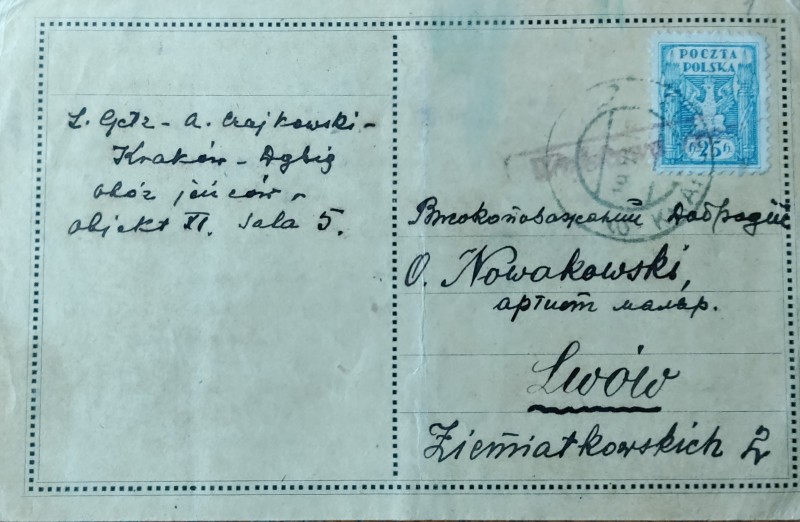 L. Getz - A. Czajkowski -
Kraków - Dąbię
obóz jeńców -
objekt XI. Sala 5.
POCZTA
POLSKA
25
Високоповажаний Добродій
O. Nowakowski,
артист маляр.
Lwów
Ziemiatkowskich 2